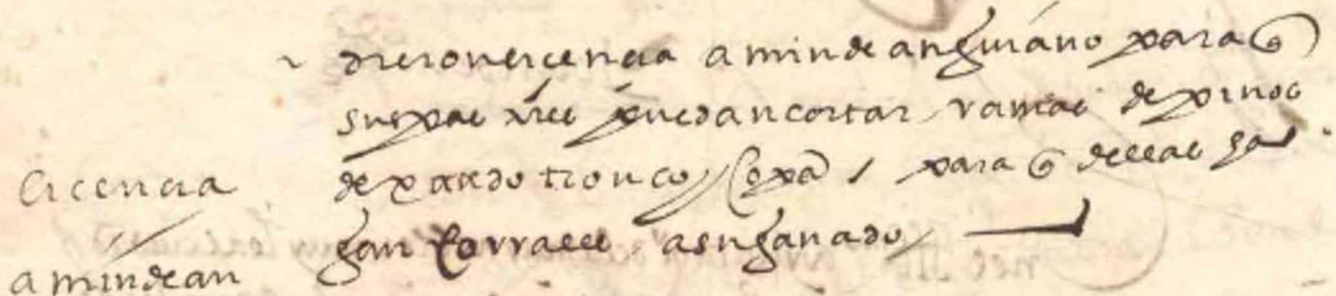 dieron licencia a min de anguiano para q
sus pastores puedan cortar ramas de pinos
dexando tronco y copa / para q dellas ha
licencia
gan corrales a su ganado
a min de an